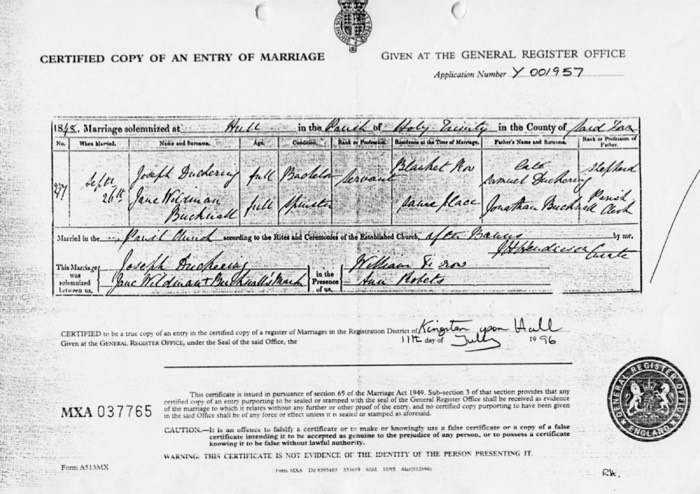 CERTIFIED COPY OF AN ENTRY OF MARRIAGE
GIVEN AT THE GENERAL REGISTER OFFICE
Application Number Y 001957
1845. Marriage solemnized at Hull in the Parish of Holy Trinity in the County of said Town
No. When Married. Name and Surname. Age. Condition. Rank or Profession. Residence at the Time of Marriage. Father's Name and Surname. Rank or Profession of Father.
Sept 26th Joseph Duchering full Bachelor Servant Blanket Row Late Samuel Duchering Shepherd
Jane Wildman Bucknall full Spinster same place Jonathan Bucknall Parish Clerk
Married in the Parish Church according to the Rites and Ceremonies of the Established Church, after Banns by me,
Curate
This Marriage was solemnized between us, Joseph Duchering
Jane Wildman + Bucknall's Mark
in the Presence of us, William
Ann Roberts
CERTIFIED to be a true copy of an entry in the certified copy of a register of Marriages in the Registration District of Kingston upon Hull
Given at the GENERAL REGISTER OFFICE, under the Seal of the said Office, the 11th day of July 1996
MXA 037765
This certificate is issued in pursuance of section 65 of the Marriage Act 1949. Sub-section 3 of that section provides that any
certified copy of an entry purporting to be sealed or stamped with the seal of the General Register Office shall be received as evidence
of the marriage to which it relates without any further or other proof of the entry, and no certified copy purporting to have been given
in the said Office shall be of any force or effect unless it is sealed or stamped as aforesaid.
CAUTION.—It is an offence to falsify a certificate or to make or knowingly use a false certificate or a copy of a false
certificate intending it to be accepted as genuine to the prejudice of any person, or to possess a certificate
knowing it to be false without lawful authority.
WARNING: THIS CERTIFICATE IS NOT EVIDENCE OF THE IDENTITY OF THE PERSON PRESENTING IT.
GENERAL REGISTER OFFICE
ENGLAND
Form A513MX
RW.